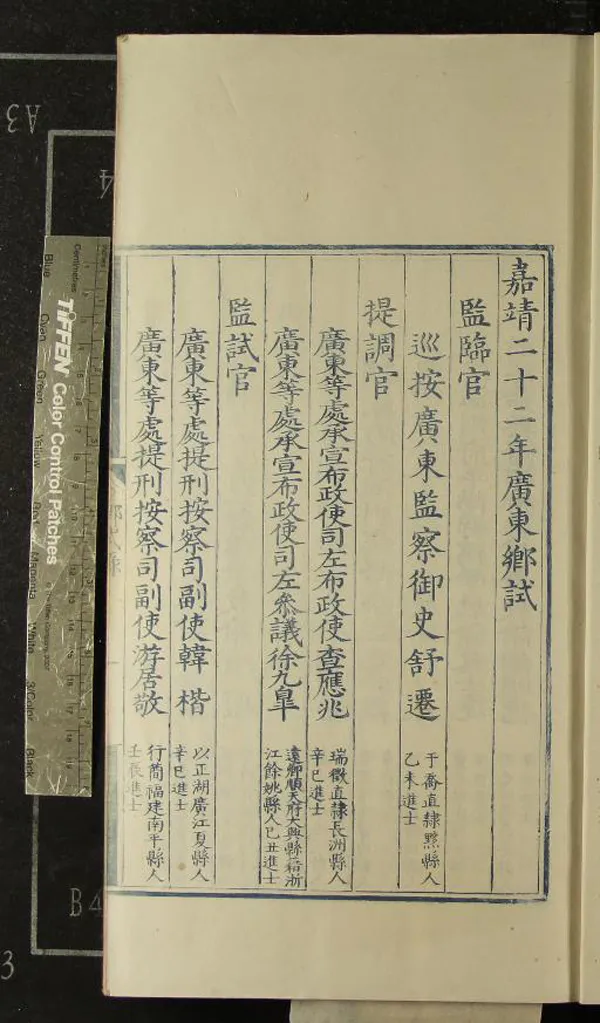 嘉靖二十二年廣東鄉試
監臨官
巡按廣東監察御史舒遷
于喬直隸黟縣人
乙未進士
提調官
廣東等處承宣布政使司左布政使查應兆
瑞徵直隸長洲縣人
辛巳進士
廣東等處承宣布政使司左叅議徐九皐
遠卿順天府大興縣籍浙
江餘姚縣人己丑進士
監試官
廣東等處提刑按察司副使韓楷
以正湖廣江夏縣人
辛巳進士
廣東等處提刑按察司副使游居敬
行簡福建南平縣人
壬辰進士
TIFFEN Color Control Patches
Centimetres
Blue
Cyan
Green
Yellow
Red
Magenta
White
3/Color
Black
A3
4
B4
3